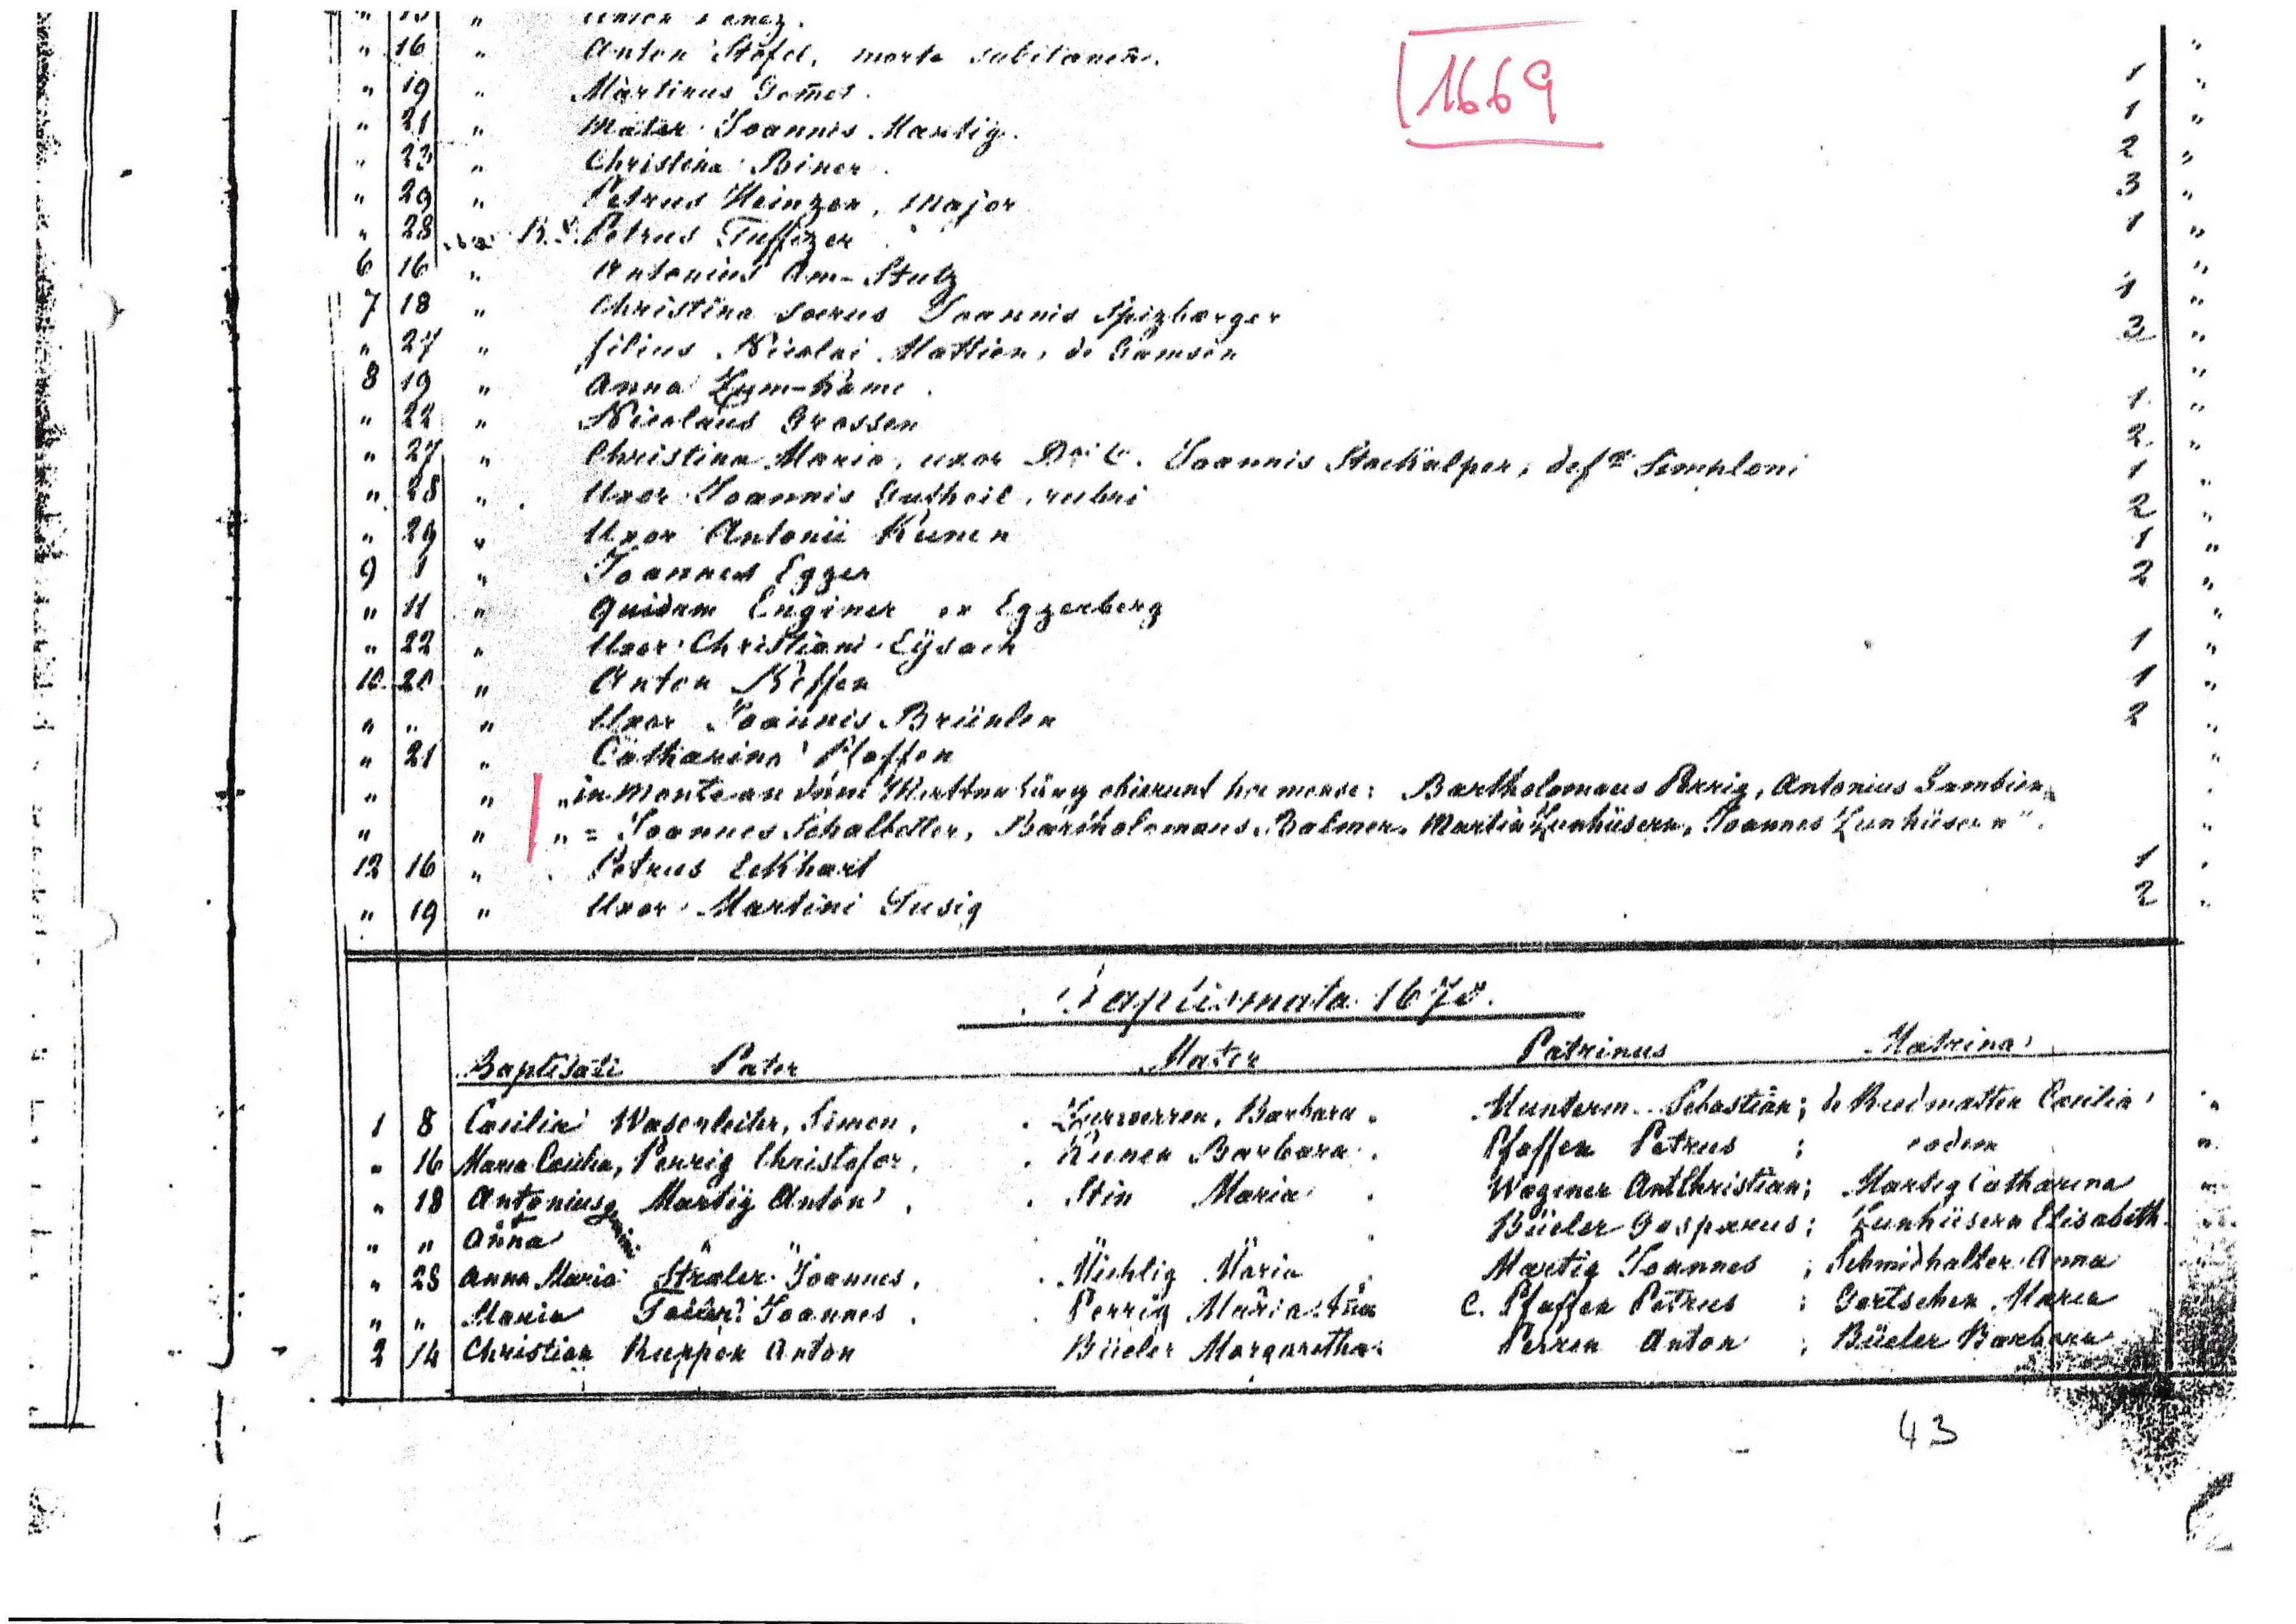 " 16 " Anton Stofel, morte subitanea.
1669
" 19 " Martinus Gom̅er. 1 "
" 21 " Mater Joannis Martig. 1 "
" 23 " Christina Biner. 2 "
" 29 " Petrus Heinzen, Major 3 "
" 28 R. D. Petrus Tuffizer 1 "
6 16 " Antonius Am-Stutz "
7 18 " Christina Socrus Joannis Spizbærger 1 "
" 27 " filius Nicolai Mattien, de Gamsen 2 "
8 19 " Anna Zum-Käme. "
" 22 " Nicolaus Grossen 1 "
" 27 " Christina Maria, uxor Joannis Stockalper, Semploni 2 "
" 28 " Uxor Joannis Gutheil, rubri 1 "
" 29 " Uxor Antonii Kunen 2 "
9 1 " Joannes Egger 1 "
" 11 " Quidam Enginer ex Eggerberg 2 "
" 22 " Uxor Christiani Eÿsach 1 "
10 20 " Anton Kiffen 1 "
" " " Uxor Joannis Brünlen 2 "
" 21 " Catharina Plaffen "
" " "in Monte an obierunt hoc mense: Bartholomaus Perrig, Antonius Gambien,
" " " = Joannes Schalbetter, Bartholomaus Balmer, Martin Zunhüsern, Joannes Zunhüsern".
12 16 " Petrus Eckhart 1
" 19 " Uxor Martini Gusig 2 "
Baptismata 1670.
Baptisati Pater Mater Patrinus Matrina
1 8 Cæcilia Wasenleiter, Simon. Zurwerren, Barbara. Munterm. Sebastian; de Riedmatten Cæcilia "
" 16 Maria Cæcilia, Perrig Christofor. Kunen Barbara. Pfaffen Petrus ; eadem "
" 18 Antonius gemini Martig Anton. Stin Maria. Wegener Ant Christian; Martig Catharina "
" " Anna " " " " Büeler Gasparus; Zunhüsern Elisabeth. "
" 28 Anna Maria Straler Joannes. Michlig Maria Martig Joannes ; Schmidhalter Anna
" " Maria Joannes. Perrig Maria C. Pfaffen Petrus ; Gertschen Maria
2 14 Christian Ruppen Anton Büeler Margaretha Perren Anton ; Büeler Barbara
43